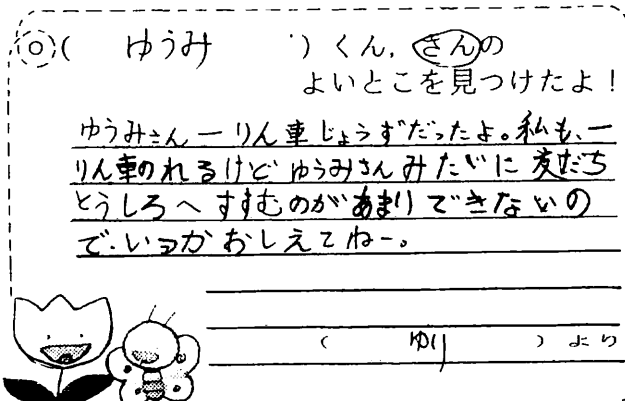 (ゆうみ)くん,さんの
よいとこを見つけたよ!
ゆうみさん一りん車じょうずだったよ。私も、一
りん車のれるけどゆうみさんみたいに友だち
とうしろへすすむのがあまりできないの
で.いつかおしえてねー。
(ゆり)より